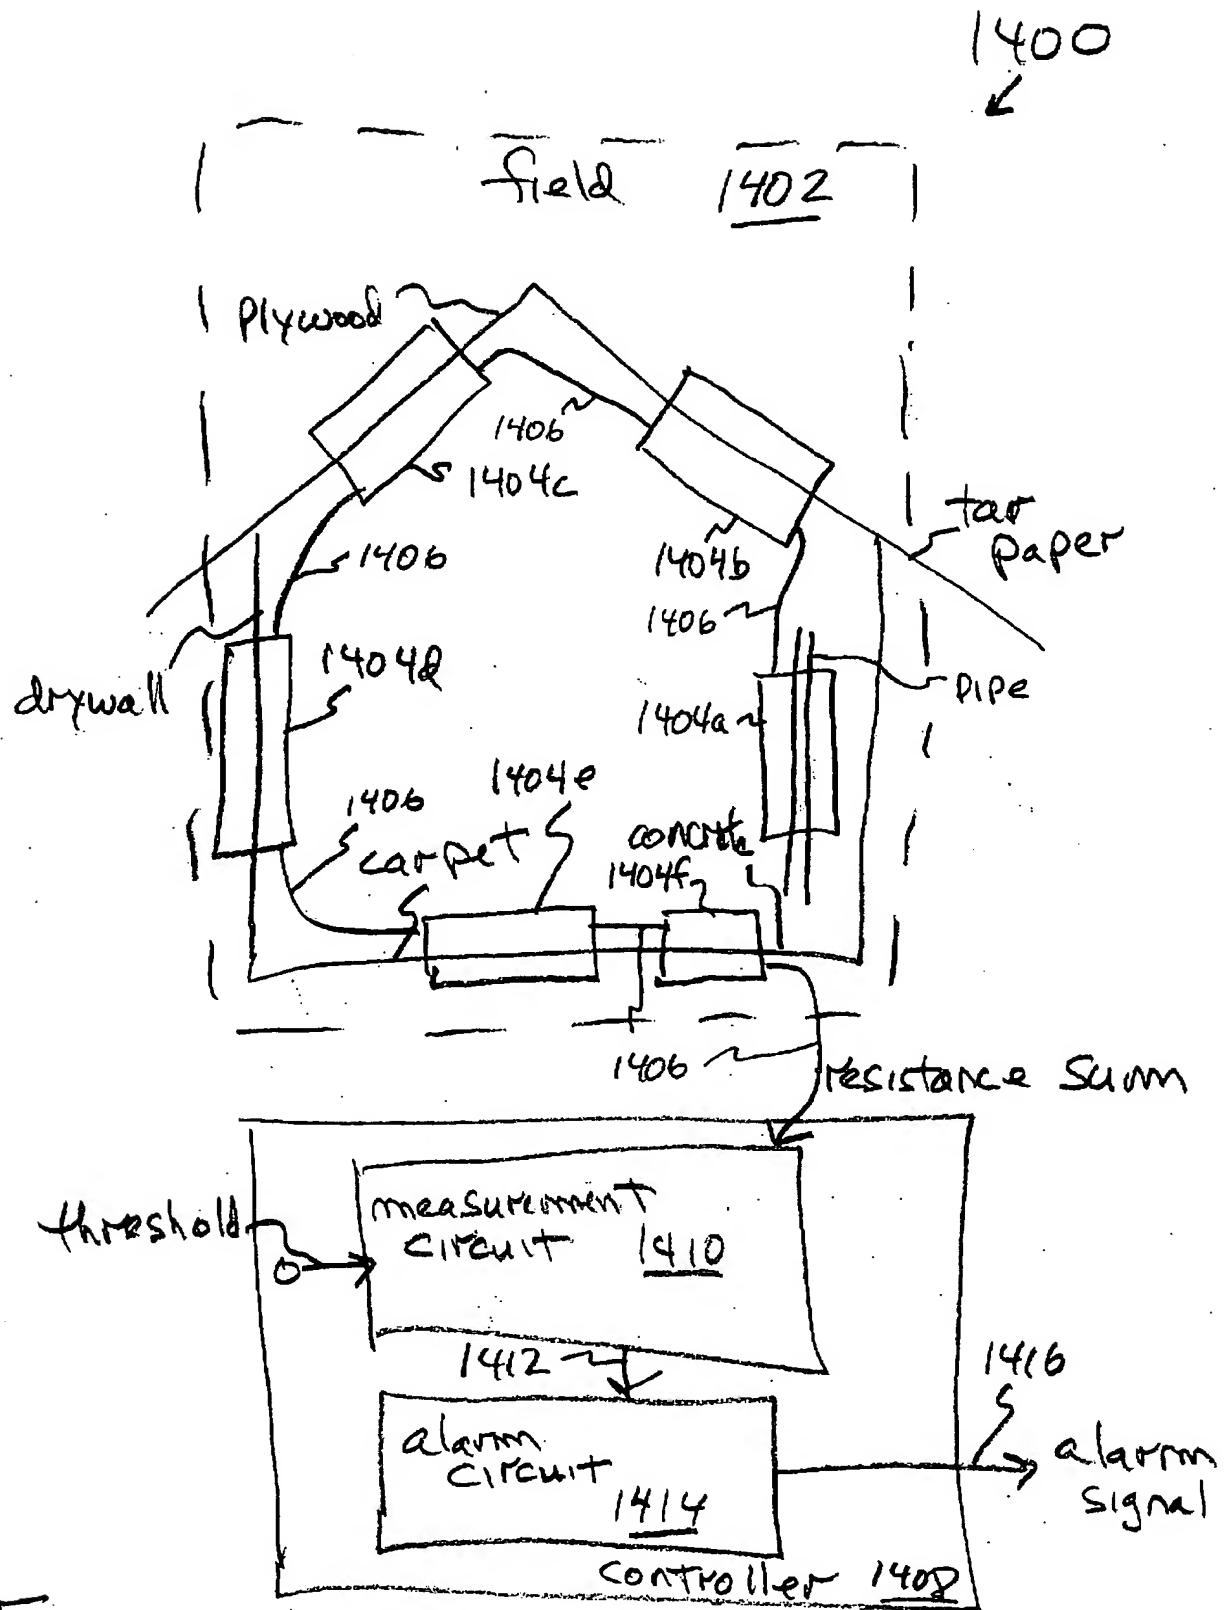 1400
field 1402
plywood
1406
1404c
1406
1404b
tar
paper
1406
drywall
1404d
1404a
pipe
1404e
1406
carpet
concrete
1404f
1406
resistance sum
threshold
measurement
circuit 1410
1412
1416
alarm
circuit
1414
alarm
signal
controller 1408